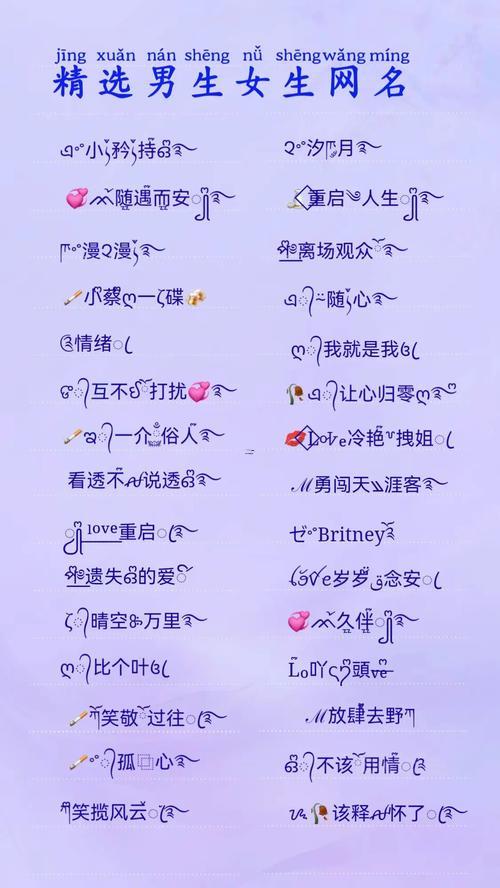 jīng xuǎn nán shēng nǚ shēng wǎng míng
精选男生女生网名
小矜持
汐月
💞随遇而安
重启人生
漫漫
离场观众
🚬小蔡一碟🥠
随心
情绪
我就是我
互不打扰💞
🥀让心归零
🚬一介俗人
💋Love冷艳拽姐
看透不说透
ℳ勇闯天涯客
love重启
ゼ°Britney
遗失的爱
Love岁岁念安
晴空万里
💞久伴
比个叶
Lo吖頭ve
🚬笑敬过往
ℳ放肆去野
🚬孤心
不该用情
笑揽风云
🥀该释怀了